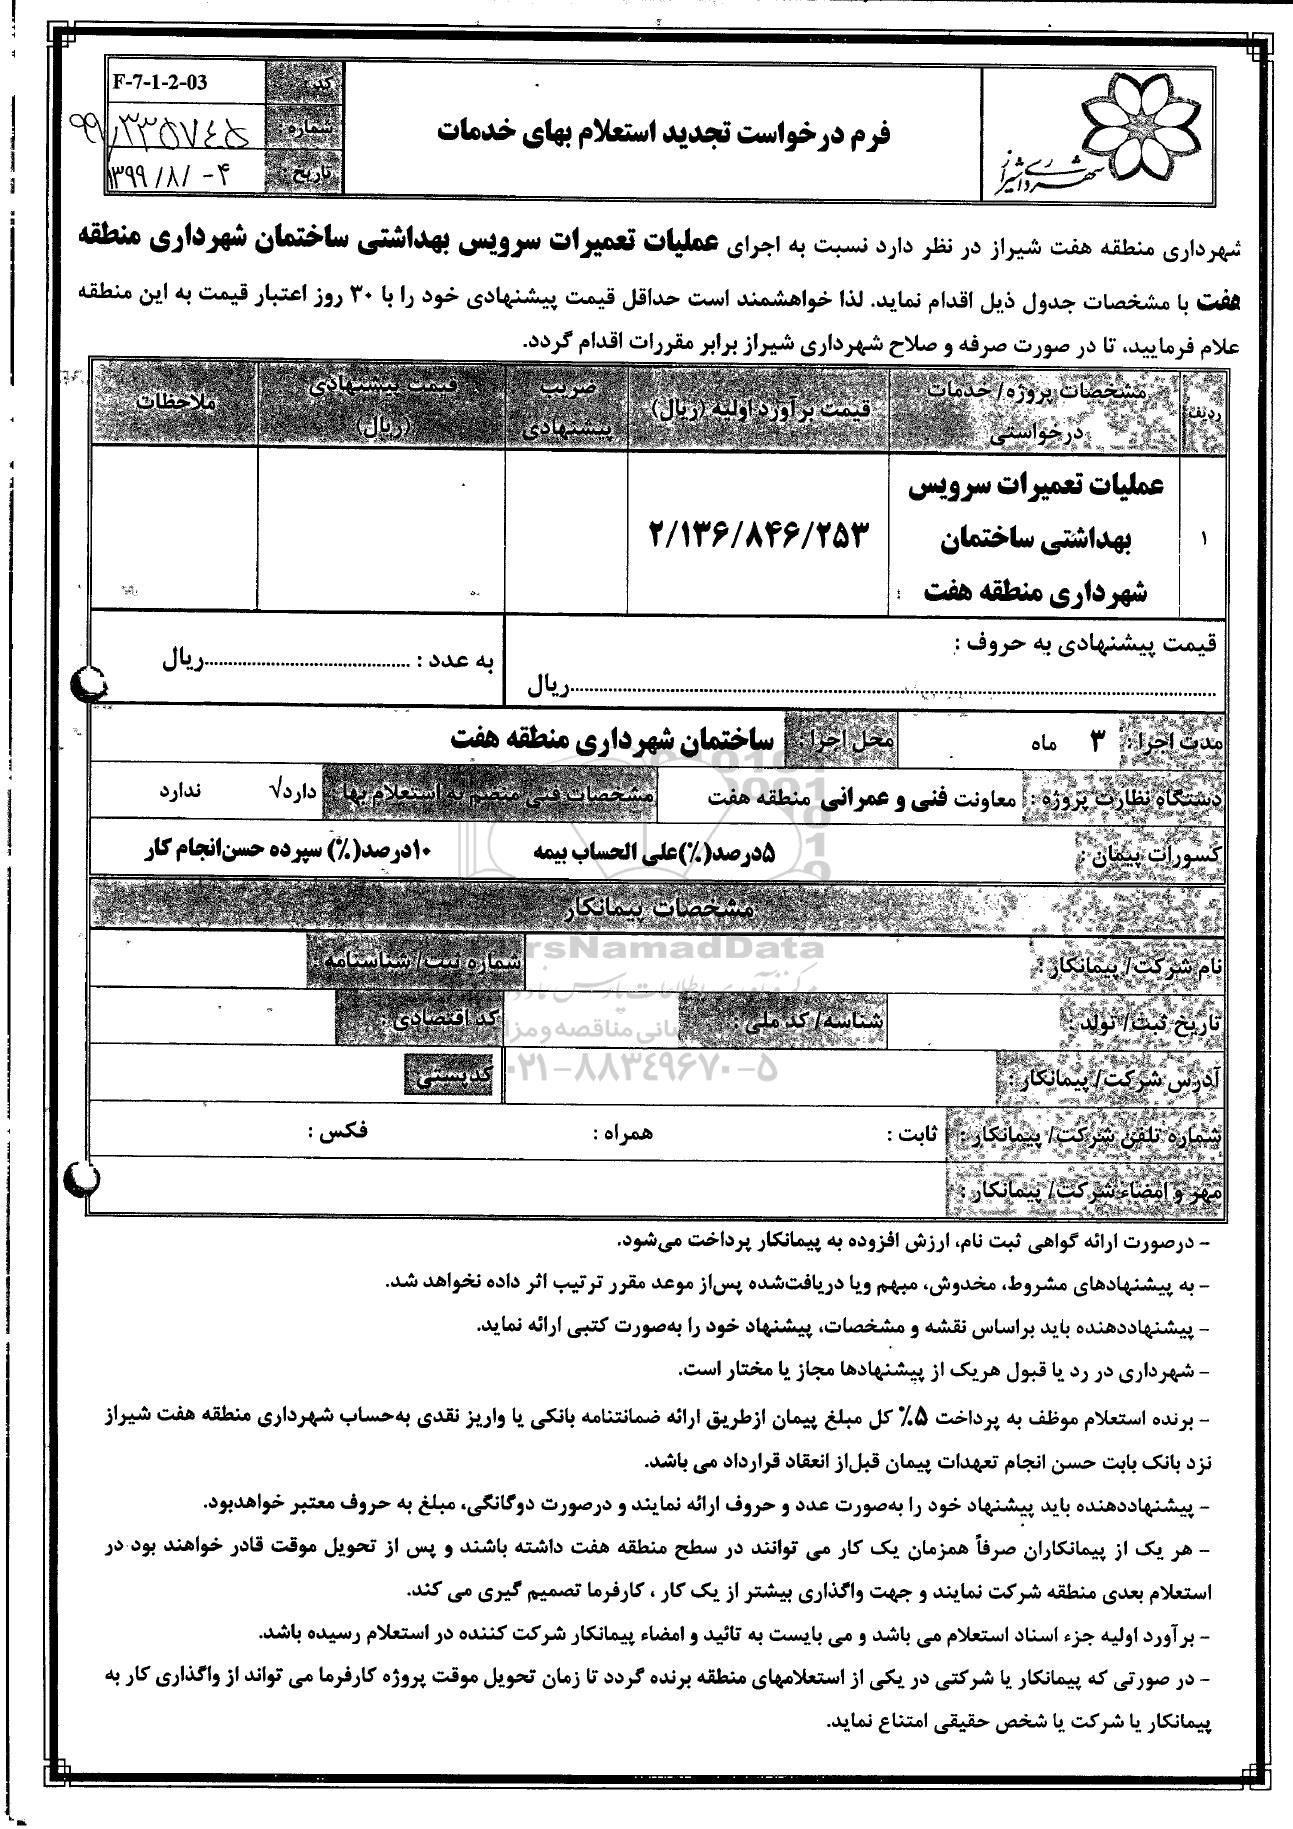 شهرداری شیراز
فرم درخواست تجدید استعلام بهای خدمات
کد : F-7-1-2-03
شماره : ۹۹/۳۳۵۷۴۵
تاریخ : ۱۳۹۹/۸/۰۴
شهرداری منطقه هفت شیراز در نظر دارد نسبت به اجرای عملیات تعمیرات سرویس بهداشتی ساختمان شهرداری منطقه
هفت با مشخصات جدول ذیل اقدام نماید. لذا خواهشمند است حداقل قیمت پیشنهادی خود را با ۳۰ روز اعتبار قیمت به این منطقه
علام فرمایید، تا در صورت صرفه و صلاح شهرداری شیراز برابر مقررات اقدام گردد.
ردیف
مشخصات پروژه/ خدمات
درخواستی
قیمت برآورد اولیه (ریال)
ضریب
پیشنهادی
قیمت پیشنهادی
(ریال)
ملاحظات
۱
عملیات تعمیرات سرویس
بهداشتی ساختمان
شهرداری منطقه هفت
۲/۱۳۶/۸۴۶/۲۵۳
قیمت پیشنهادی به حروف :
..........ریال
به عدد : ..........ریال
مدت اجرا : ۳ ماه محل اجرا : ساختمان شهرداری منطقه هفت
دستگاه نظارت پروژه : معاونت فنی و عمرانی منطقه هفت مشخصات فنی منضم به استعلام بها : دارد√ ندارد
کسورات پیمان : ۵درصد(٪)علی الحساب بیمه ۱۰درصد(٪) سپرده حسن‌انجام کار
مشخصات پیمانکار
نام شرکت/ پیمانکار : شماره ثبت/ شناسنامه :
تاریخ ثبت/ تولد : شناسه/ کد ملی : کد اقتصادی :
آدرس شرکت/ پیمانکار : کدپستی
شماره تلفن شرکت/ پیمانکار : ثابت : همراه : فکس :
مهر و امضاء شرکت/ پیمانکار :
rsNamadData
۰۲۱-۸۸۳۴۹۶۷۰-۵
- درصورت ارائه گواهی ثبت نام، ارزش افزوده به پیمانکار پرداخت می‌شود.
- به پیشنهادهای مشروط، مخدوش، مبهم ویا دریافت‌شده پس‌از موعد مقرر ترتیب اثر داده نخواهد شد.
- پیشنهاددهنده باید براساس نقشه و مشخصات، پیشنهاد خود را به‌صورت کتبی ارائه نماید.
- شهرداری در رد یا قبول هریک از پیشنهادها مجاز یا مختار است.
- برنده استعلام موظف به پرداخت ۵٪ کل مبلغ پیمان ازطریق ارائه ضمانتنامه بانکی یا واریز نقدی به‌حساب شهرداری منطقه هفت شیراز
نزد بانک بابت حسن انجام تعهدات پیمان قبل‌از انعقاد قرارداد می باشد.
- پیشنهاددهنده باید پیشنهاد خود را به‌صورت عدد و حروف ارائه نمایند و درصورت دوگانگی، مبلغ به حروف معتبر خواهدبود.
- هر یک از پیمانکاران صرفاً همزمان یک کار می توانند در سطح منطقه هفت داشته باشند و پس از تحویل موقت قادر خواهند بود در
استعلام بعدی منطقه شرکت نمایند و جهت واگذاری بیشتر از یک کار ، کارفرما تصمیم گیری می کند.
- برآورد اولیه جزء اسناد استعلام می باشد و می بایست به تائید و امضاء پیمانکار شرکت کننده در استعلام رسیده باشد.
- در صورتی که پیمانکار یا شرکتی در یکی از استعلامهای منطقه برنده گردد تا زمان تحویل موقت پروژه کارفرما می تواند از واگذاری کار به
پیمانکار یا شرکت یا شخص حقیقی امتناع نماید.